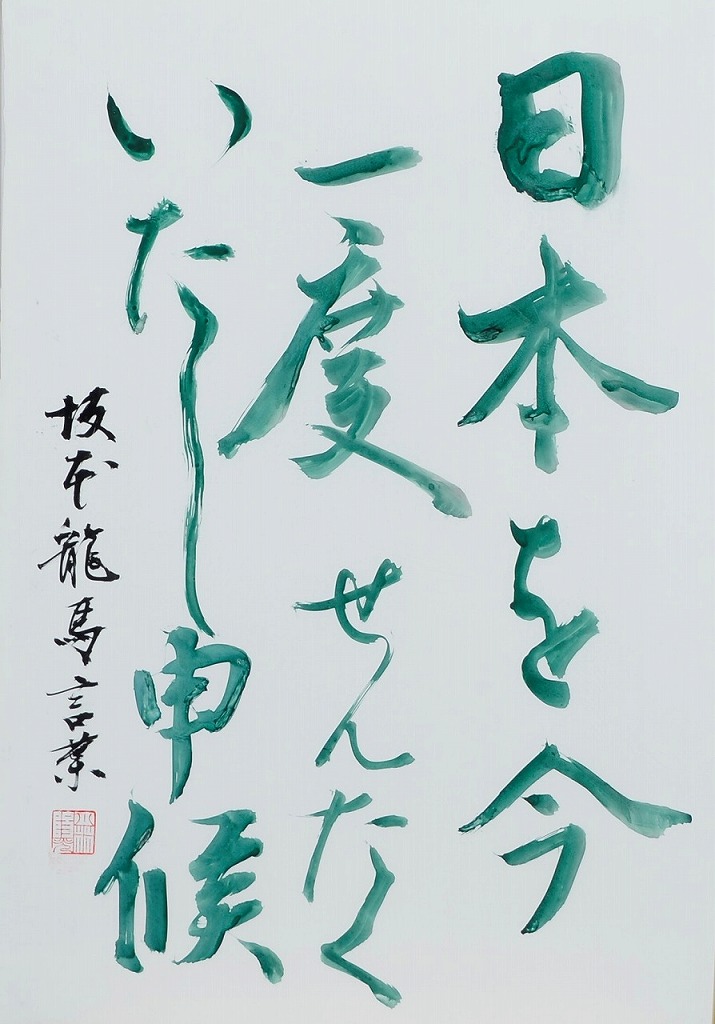 日本を今
一度せんたく
いたし申候
坂本龍馬言葉